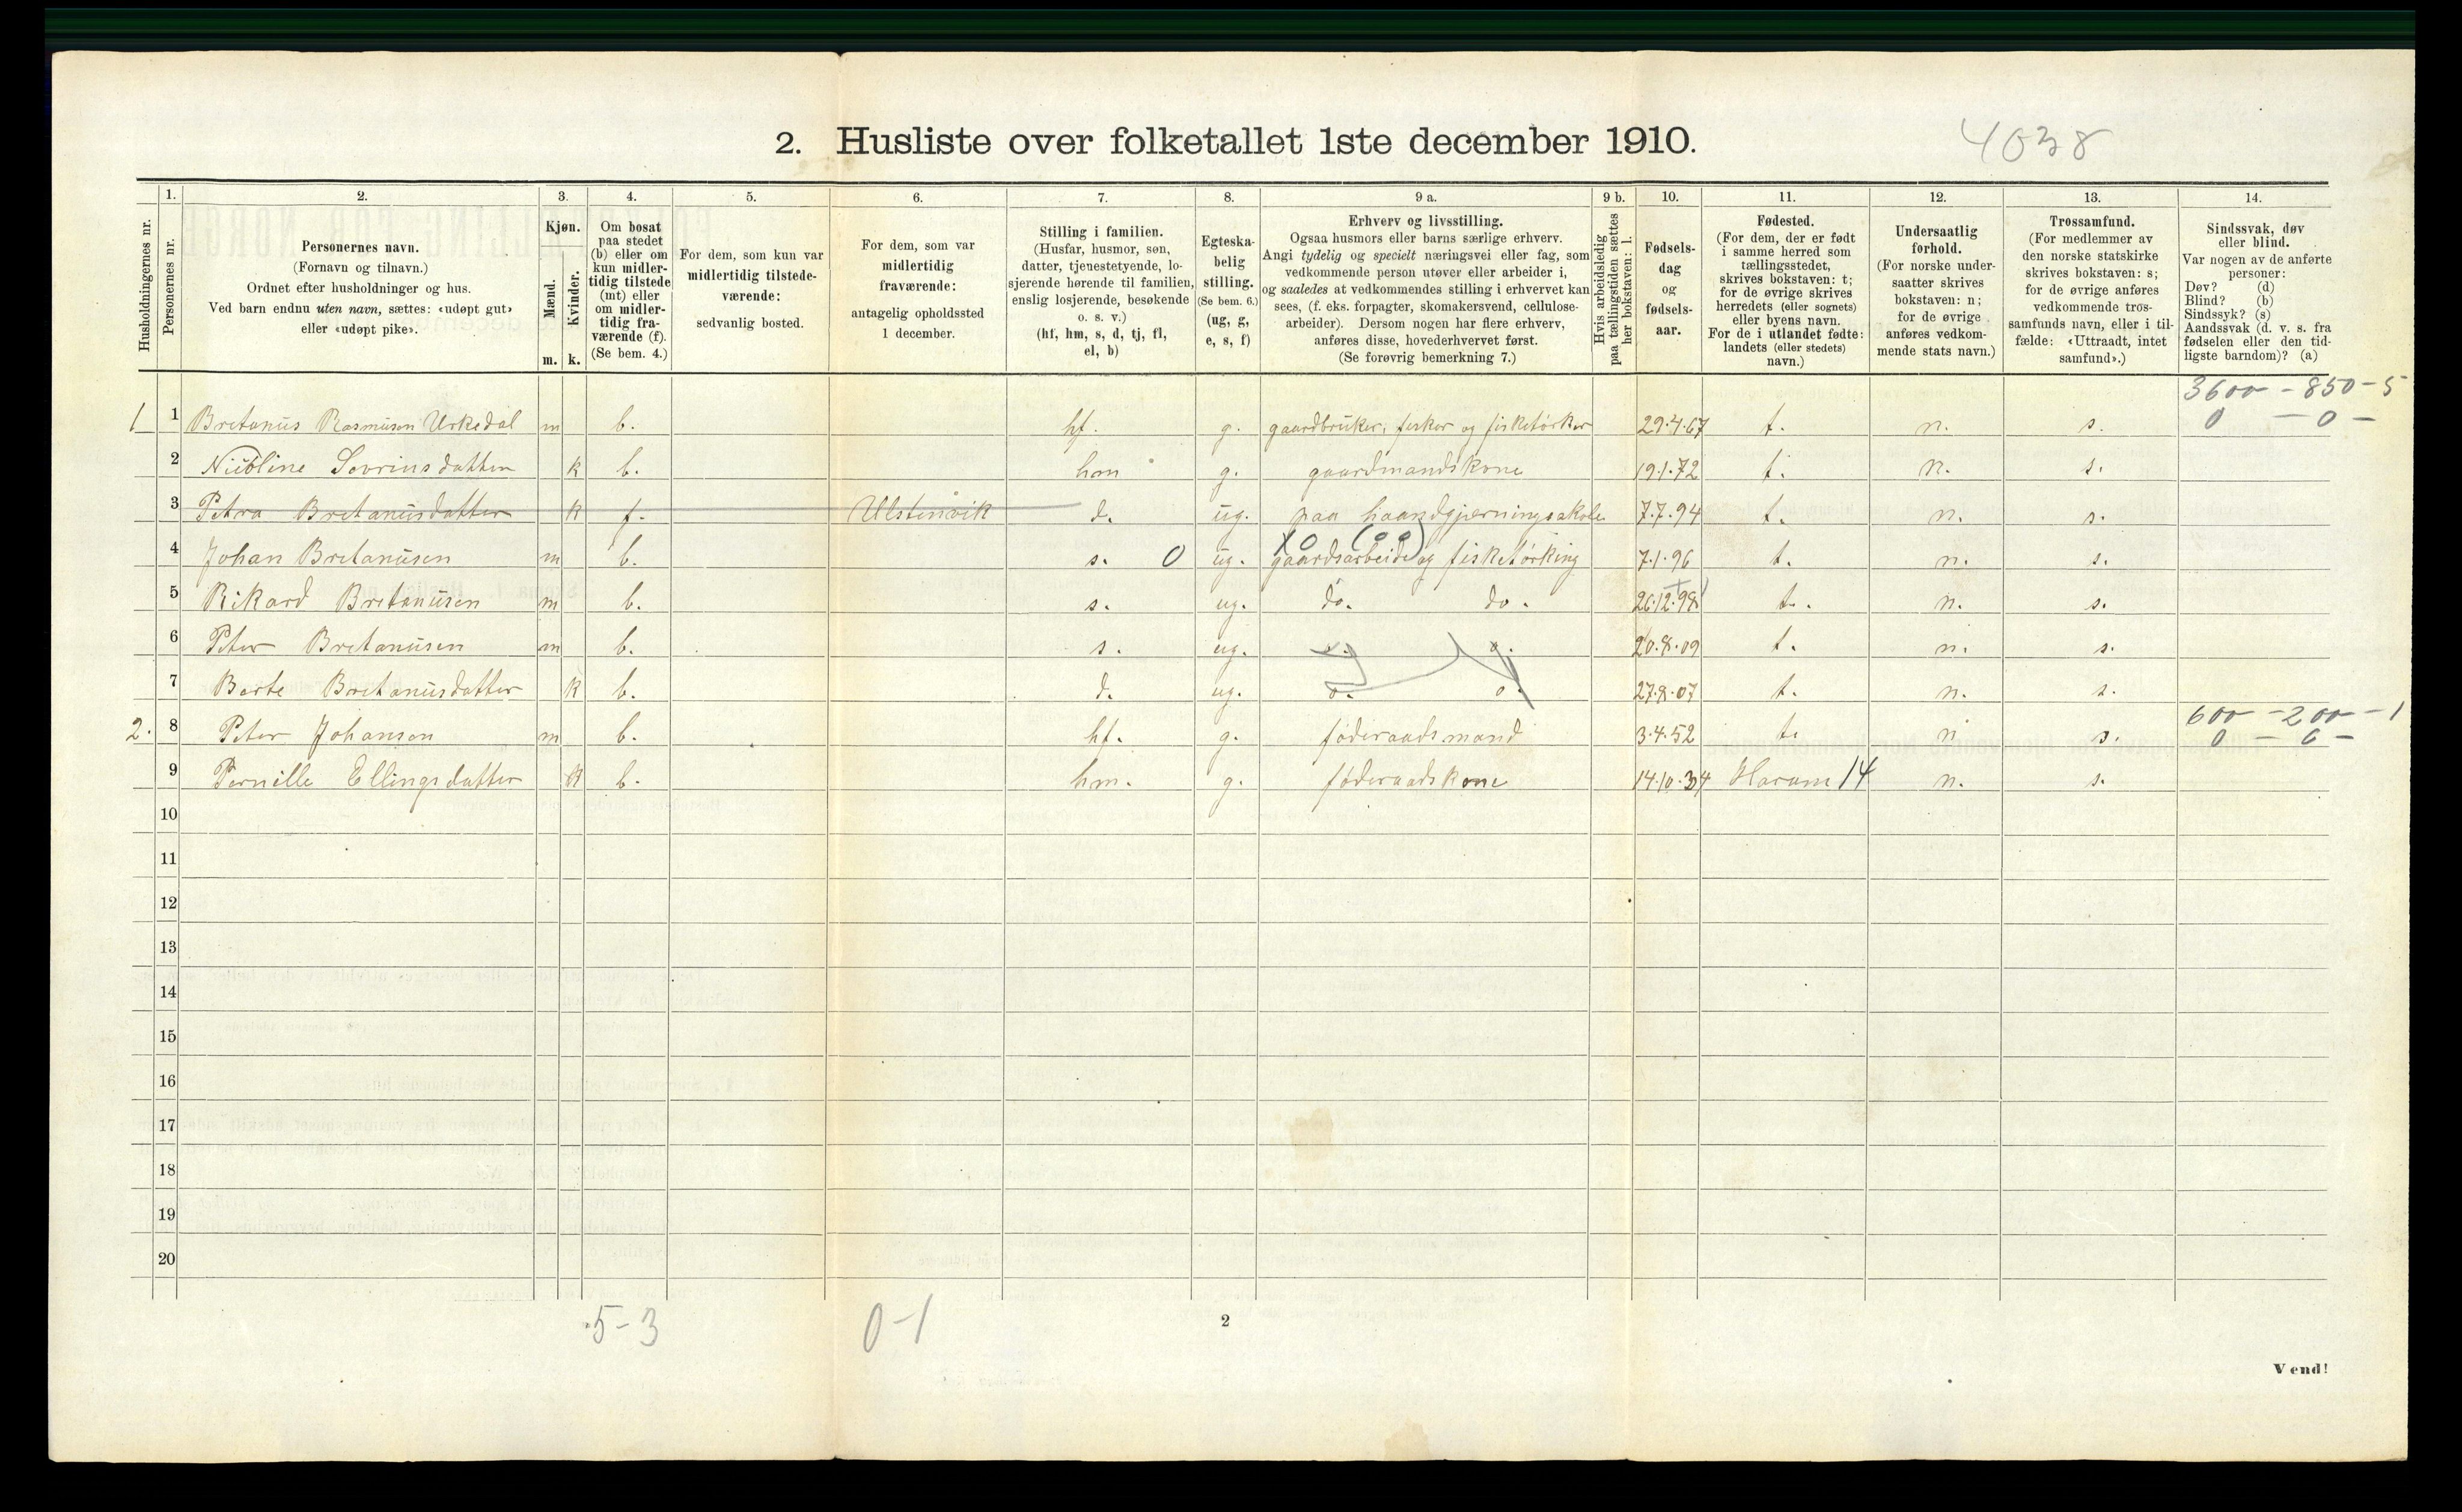 2. Husliste over folketallet 1ste december 1910.
4038
1. 2. 3. 4. 5. 6. 7. 8. 9 a. 9 b. 10. 11. 12. 13. 14.
Husholdningernes nr.
Personernes nr.
Personernes navn.
(Fornavn og tilnavn.)
Ordnet efter husholdninger og hus.
Ved barn endnu uten navn, sættes: «udøpt gut»
eller «udøpt pike».
Kjøn.
Mænd.
Kvinder.
m. k.
Om bosat
paa stedet
(b) eller om
kun midler-
tidig tilstede
(mt) eller
om midler-
tidig fra-
værende (f).
(Se bem. 4.)
For dem, som kun var
midlertidig tilstede-
værende:
sedvanlig bosted.
For dem, som var
midlertidig
fraværende:
antagelig opholdssted
1 december.
Stilling i familien.
(Husfar, husmor, søn,
datter, tjenestetyende, lo-
sjerende hørende til familien,
enslig losjerende, besøkende
o. s. v.)
(hf, hm, s, d, tj, fl,
el, b)
Egteska-
belig
stilling.
(Se bem. 6.)
(ug, g,
e, s, f)
Erhverv og livsstilling.
Ogsaa husmors eller barns særlige erhverv.
Angi tydelig og specielt næringsvei eller fag, som
vedkommende person utøver eller arbeider i,
og saaledes at vedkommendes stilling i erhvervet kan
sees, (f. eks. forpagter, skomakersvend, cellulose-
arbeider). Dersom nogen har flere erhverv,
anføres disse, hovederhvervet først.
(Se forøvrig bemerkning 7.)
Hvis arbeidsledig
paa tællingstiden sættes
her bokstaven: l.
Fødsels-
dag
og
fødsels-
aar.
Fødested.
(For dem, der er født
i samme herred som
tællingsstedet,
skrives bokstaven: t;
for de øvrige skrives
herredets (eller sognets)
eller byens navn.
For de i utlandet fødte:
landets (eller stedets)
navn.)
Undersaatlig
forhold.
(For norske under-
saatter skrives
bokstaven: n;
for de øvrige
anføres vedkom-
mende stats navn.)
Trossamfund.
(For medlemmer av
den norske statskirke
skrives bokstaven: s;
for de øvrige anføres
vedkommende tros-
samfunds navn, eller i til-
fælde: «Uttraadt, intet
samfund».)
Sindssvak, døv
eller blind.
Var nogen av de anførte
personer:
Døv? (d)
Blind? (b)
Sindssyk? (s)
Aandssvak (d. v. s. fra
fødselen eller den tid-
ligste barndom)? (a)
3600 - 850 - 5
1 1 Bretanus Rasmusen Urkedal m b. hf. g. gaardbruker, fisker og fisketørker 29.4.67 t. n. s. 0 - 0 -
2 Sovrinsdatter k b. hm g. gaardmandskone 19.1.72 t. n. s.
3 Petra Bretanusdatter k f. Ulstenvik d. ug. paa haandgjerningsskole 7.7.94 t. n. s.
10 (00)
4 Johan Bretanusen m b. s. 0 ug. gaardsarbeide og fisketørking 7.1.96 t. n. s.
5 Rikard Bretanusen m b. s. ug. do. do. 26.12.98 t. n. s.
6 Peter Bretanusen m b. s. ug. 20.8.09 t. n. s.
7 Berte Bretanusdatter k b. d. ug. o. o. 27.8.07 t. n. s.
600 - 200 - 1
2. 8 Peter Johansen m b. hf. g. føderaadsmand 3.4.52 t. n s. 0 - 0 -
9 Pernille Ellingsdatter k b. hm. g. føderaadskone 14.10.34 Haram 14 n. s.
10
11
12
13
14
15
16
17
18
19
20
5-3 0-1
2
Vend!